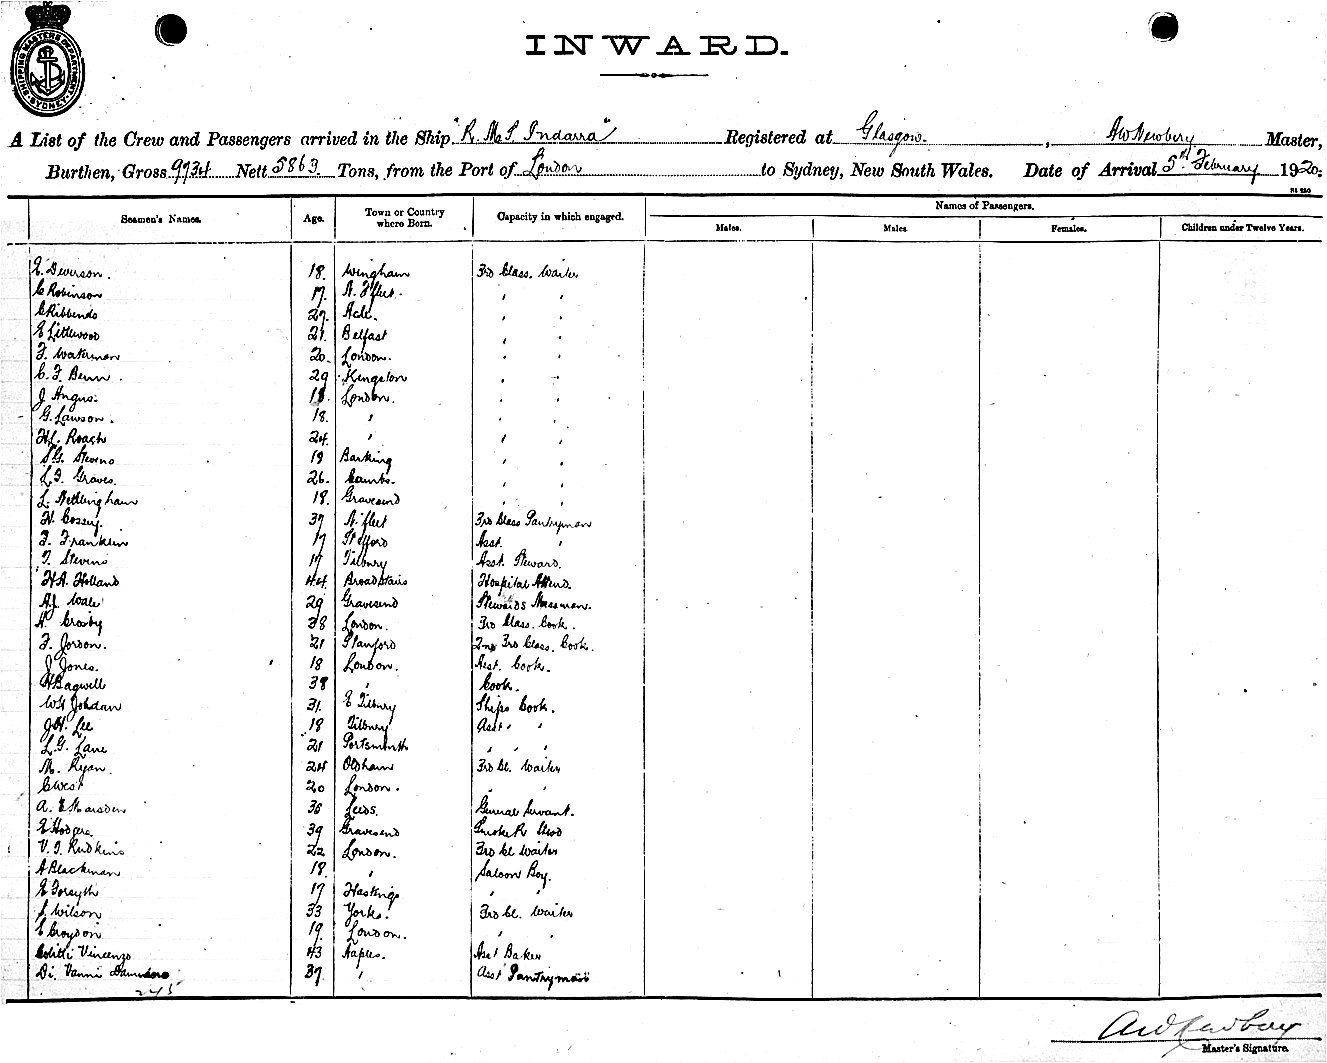 SHIPPING MASTERS DEPARTMENT SYDNEY
INWARD.
A List of the Crew and Passengers arrived in the Ship "R.M.S. Indarra" Registered at Glasgow. , AW Newbery Master,
Burthen, Gross 9734 Nett 5863 Tons, from the Port of London to Sydney, New South Wales. Date of Arrival 5th February 1920.
Names of Passengers.
Seamen's Names. Age. Town or Country where Born. Capacity in which engaged. Males. Males. Females. Children under Twelve Years.
E. Dewson. 18. Wingham 3rd Class. Waiter
C Robinson 17. N. Fleet. " "
27. Acle. " "
E Littlewood 21. Belfast " "
F. Waterman 20. London. " "
C. F. Benn. 29 Kingston " "
J Angus. 18. London. " "
G. Lawson. 18. " " "
H.J. Roach 24. " " "
S.G. Stevens 19 Barking " "
L.F. Graves. 26. Cambs. " "
L. Nettlingham 18. Gravesend " "
H. Cossey. 37 N. Fleet 3rd Class Pantryman
F. Franklin 17 Asst. "
T. Stevens 17 Tilbury Asst. Steward.
H.A. Holland 44 Broadstairs Hospital Attend.
A.J. Wale 29 Gravesend Stewards Messman.
H. Crosby 28 London. 3rd Class. Cook.
F. Jordon. 21 Stanford 2nd 3rd Class. Cook.
J Jones. 18 London. Asst. Cook.
H Bagwell 38 " Cook.
W.H. Johdan 31. E Tilbury Ships Cook.
J.H. Lee 18 Tilbury Asst " "
L.G. Lane 21 Portsmouth " " "
M. Ryan. 24 Oldham 3rd Cl. Waiter
C West 20 London. " "
A. E Marsden 36 Leeds. General Servant.
E Hodges. 39 Gravesend Smoke R Stwd
V. J. Rudkins 22 London. 3rd Cl Waiter
A Blackman 18. " Saloon Boy.
E Forsyth 17 Hastings " "
S. Wilson 33 Yorks. 3rd Cl. Waiter
E Croydon 19. London. " "
Vincenzo 43 Naples. Asst Baker
Di. Vanni 37. " Asst Pantryman
245
AW Newbery
Master's Signature.